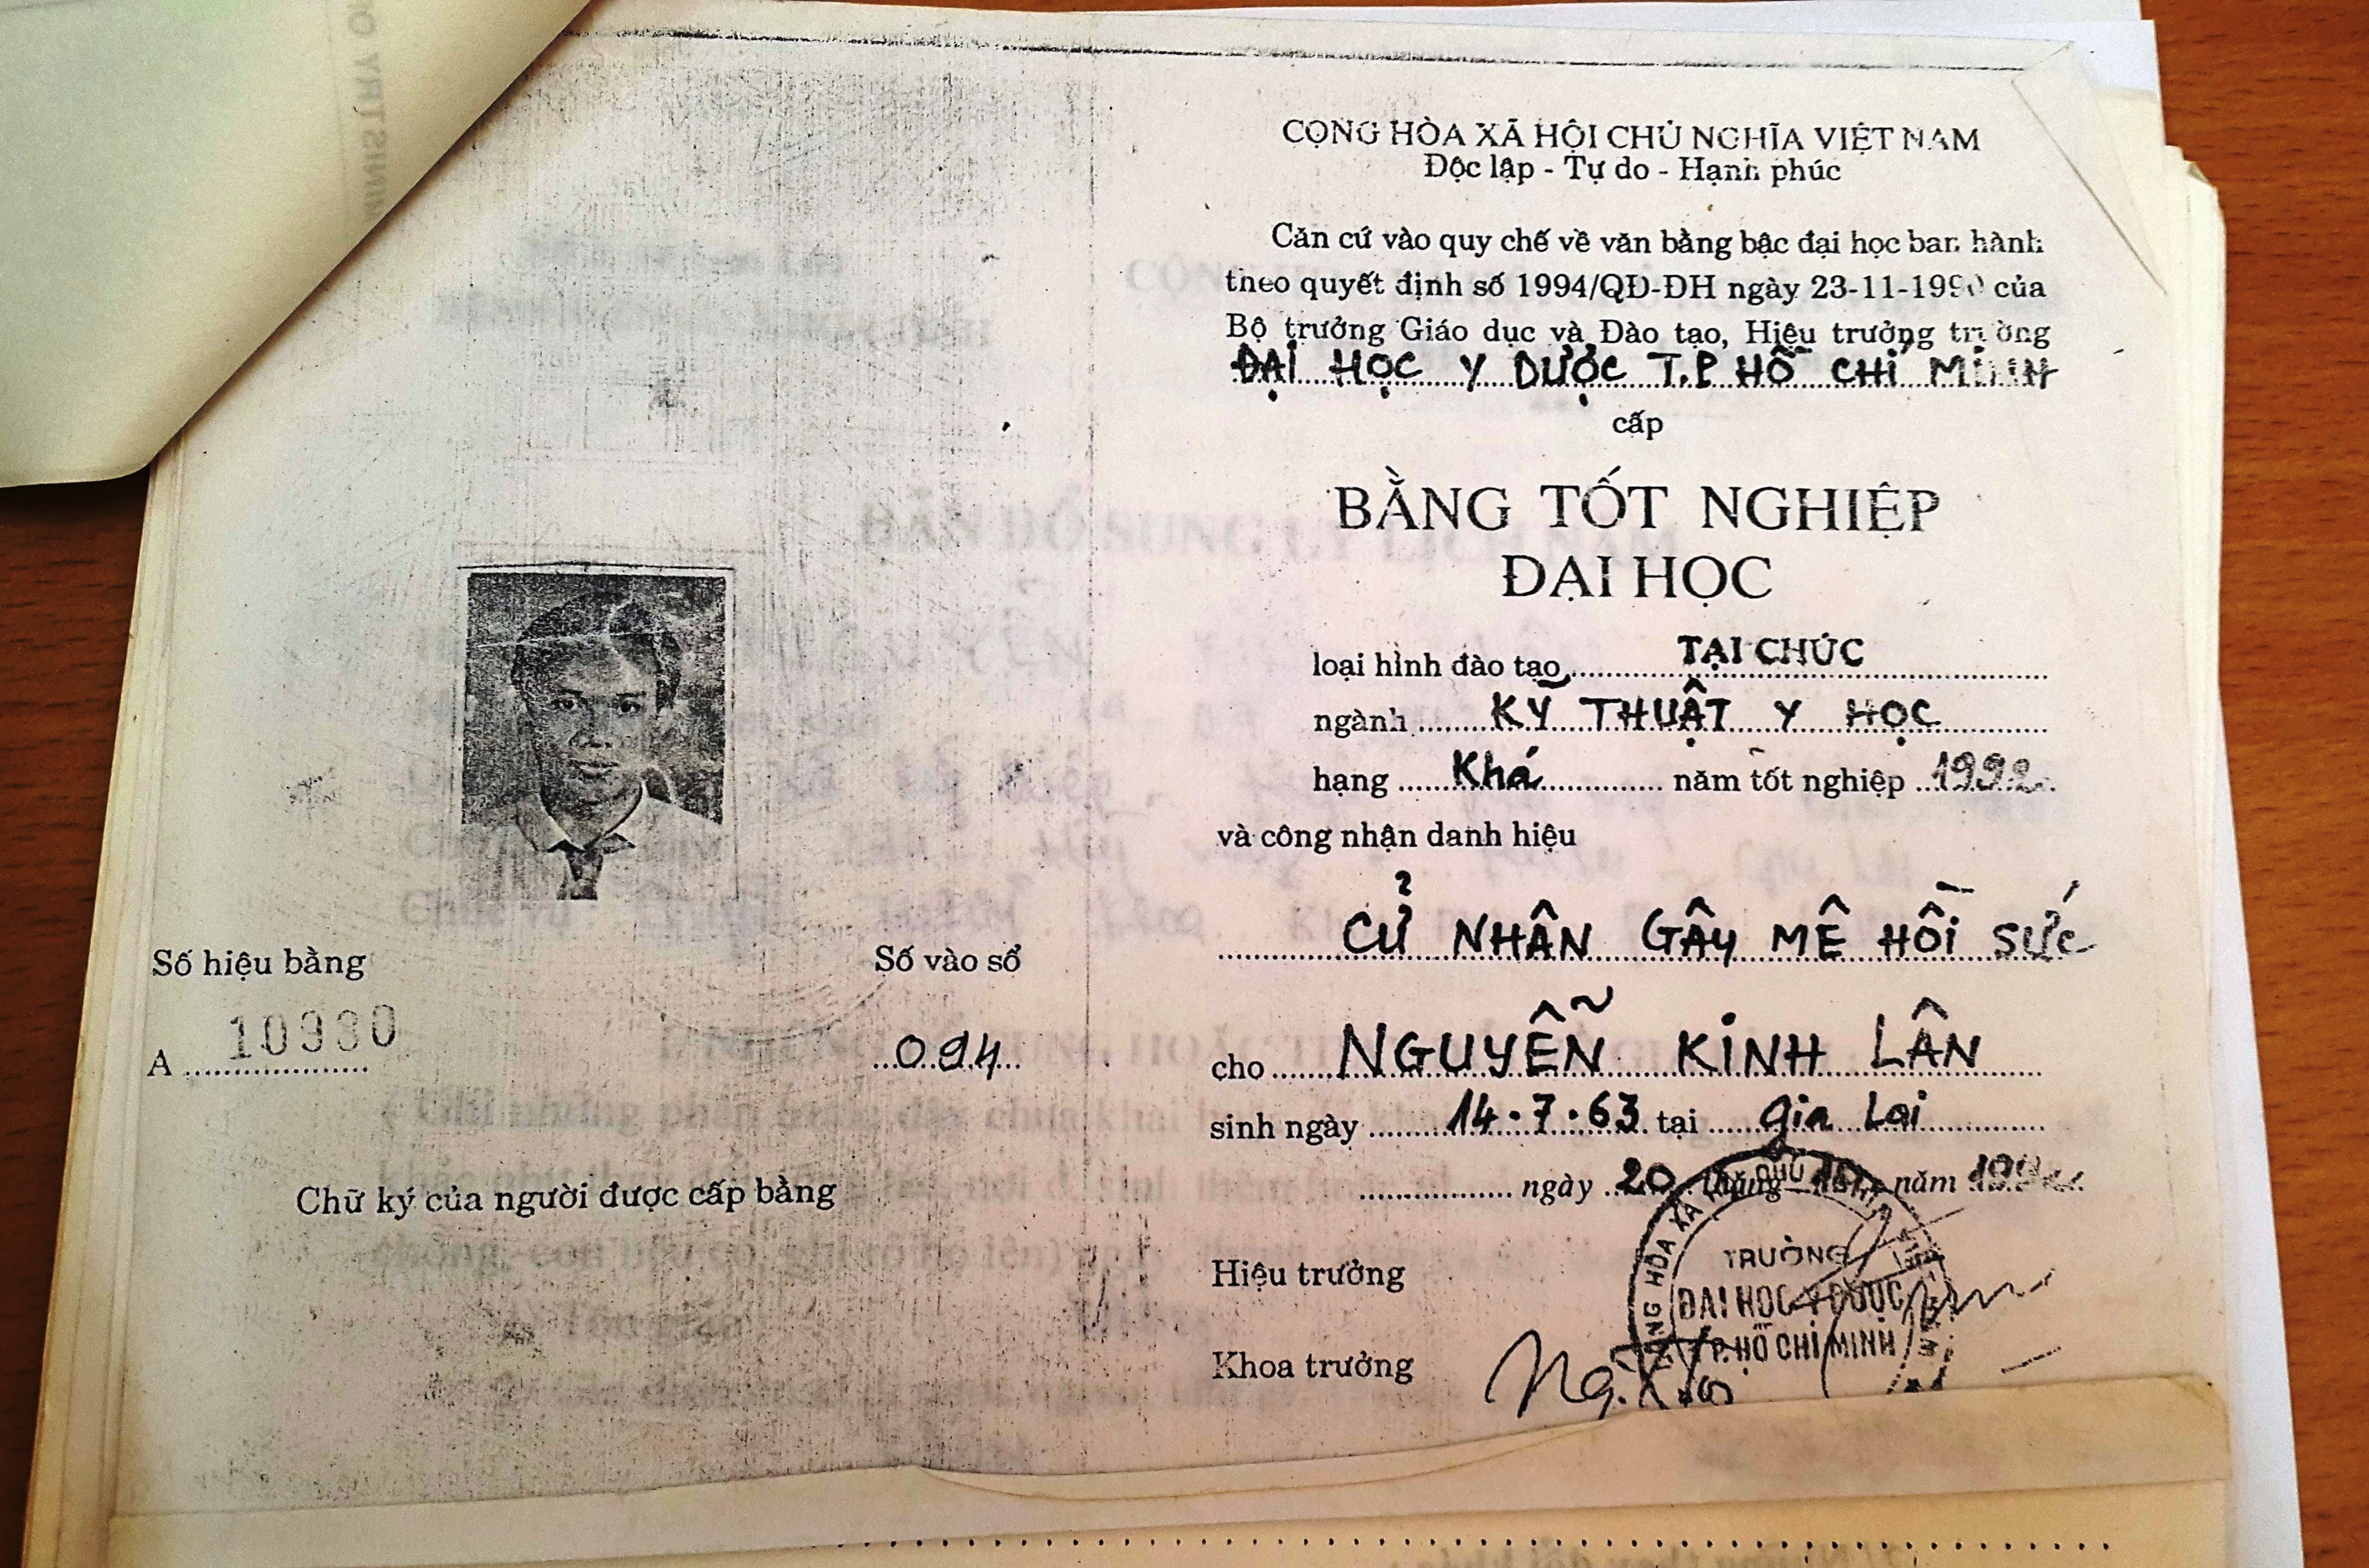 CỘNG HÒA XÃ HỘI CHỦ NGHĨA VIỆT NAM
Độc lập - Tự do - Hạnh phúc
Căn cứ vào quy chế về văn bằng bậc đại học ban hành
theo quyết định số 1994/QĐ-ĐH ngày 23-11-1990 của
Bộ trưởng Giáo dục và Đào tạo, Hiệu trưởng trường
ĐẠI HỌC Y DƯỢC T.P HỒ CHÍ MINH
cấp
BẰNG TỐT NGHIỆP
ĐẠI HỌC
loại hình đào tạo TẠI CHỨC
ngành KỸ THUẬT Y HỌC
hạng Khá năm tốt nghiệp 1992
và công nhận danh hiệu
CỬ NHÂN GÂY MÊ HỒI SỨC
cho NGUYỄN KINH LÂN
sinh ngày 14.7.63 tại Gia Lai
ngày 20 tháng năm
Hiệu trưởng
Khoa trưởng
TRƯỜNG
ĐẠI HỌC Y DƯỢC
TP. HỒ CHÍ MINH
Số hiệu bằng
A 10930
Số vào sổ
094
Chữ ký của người được cấp bằng